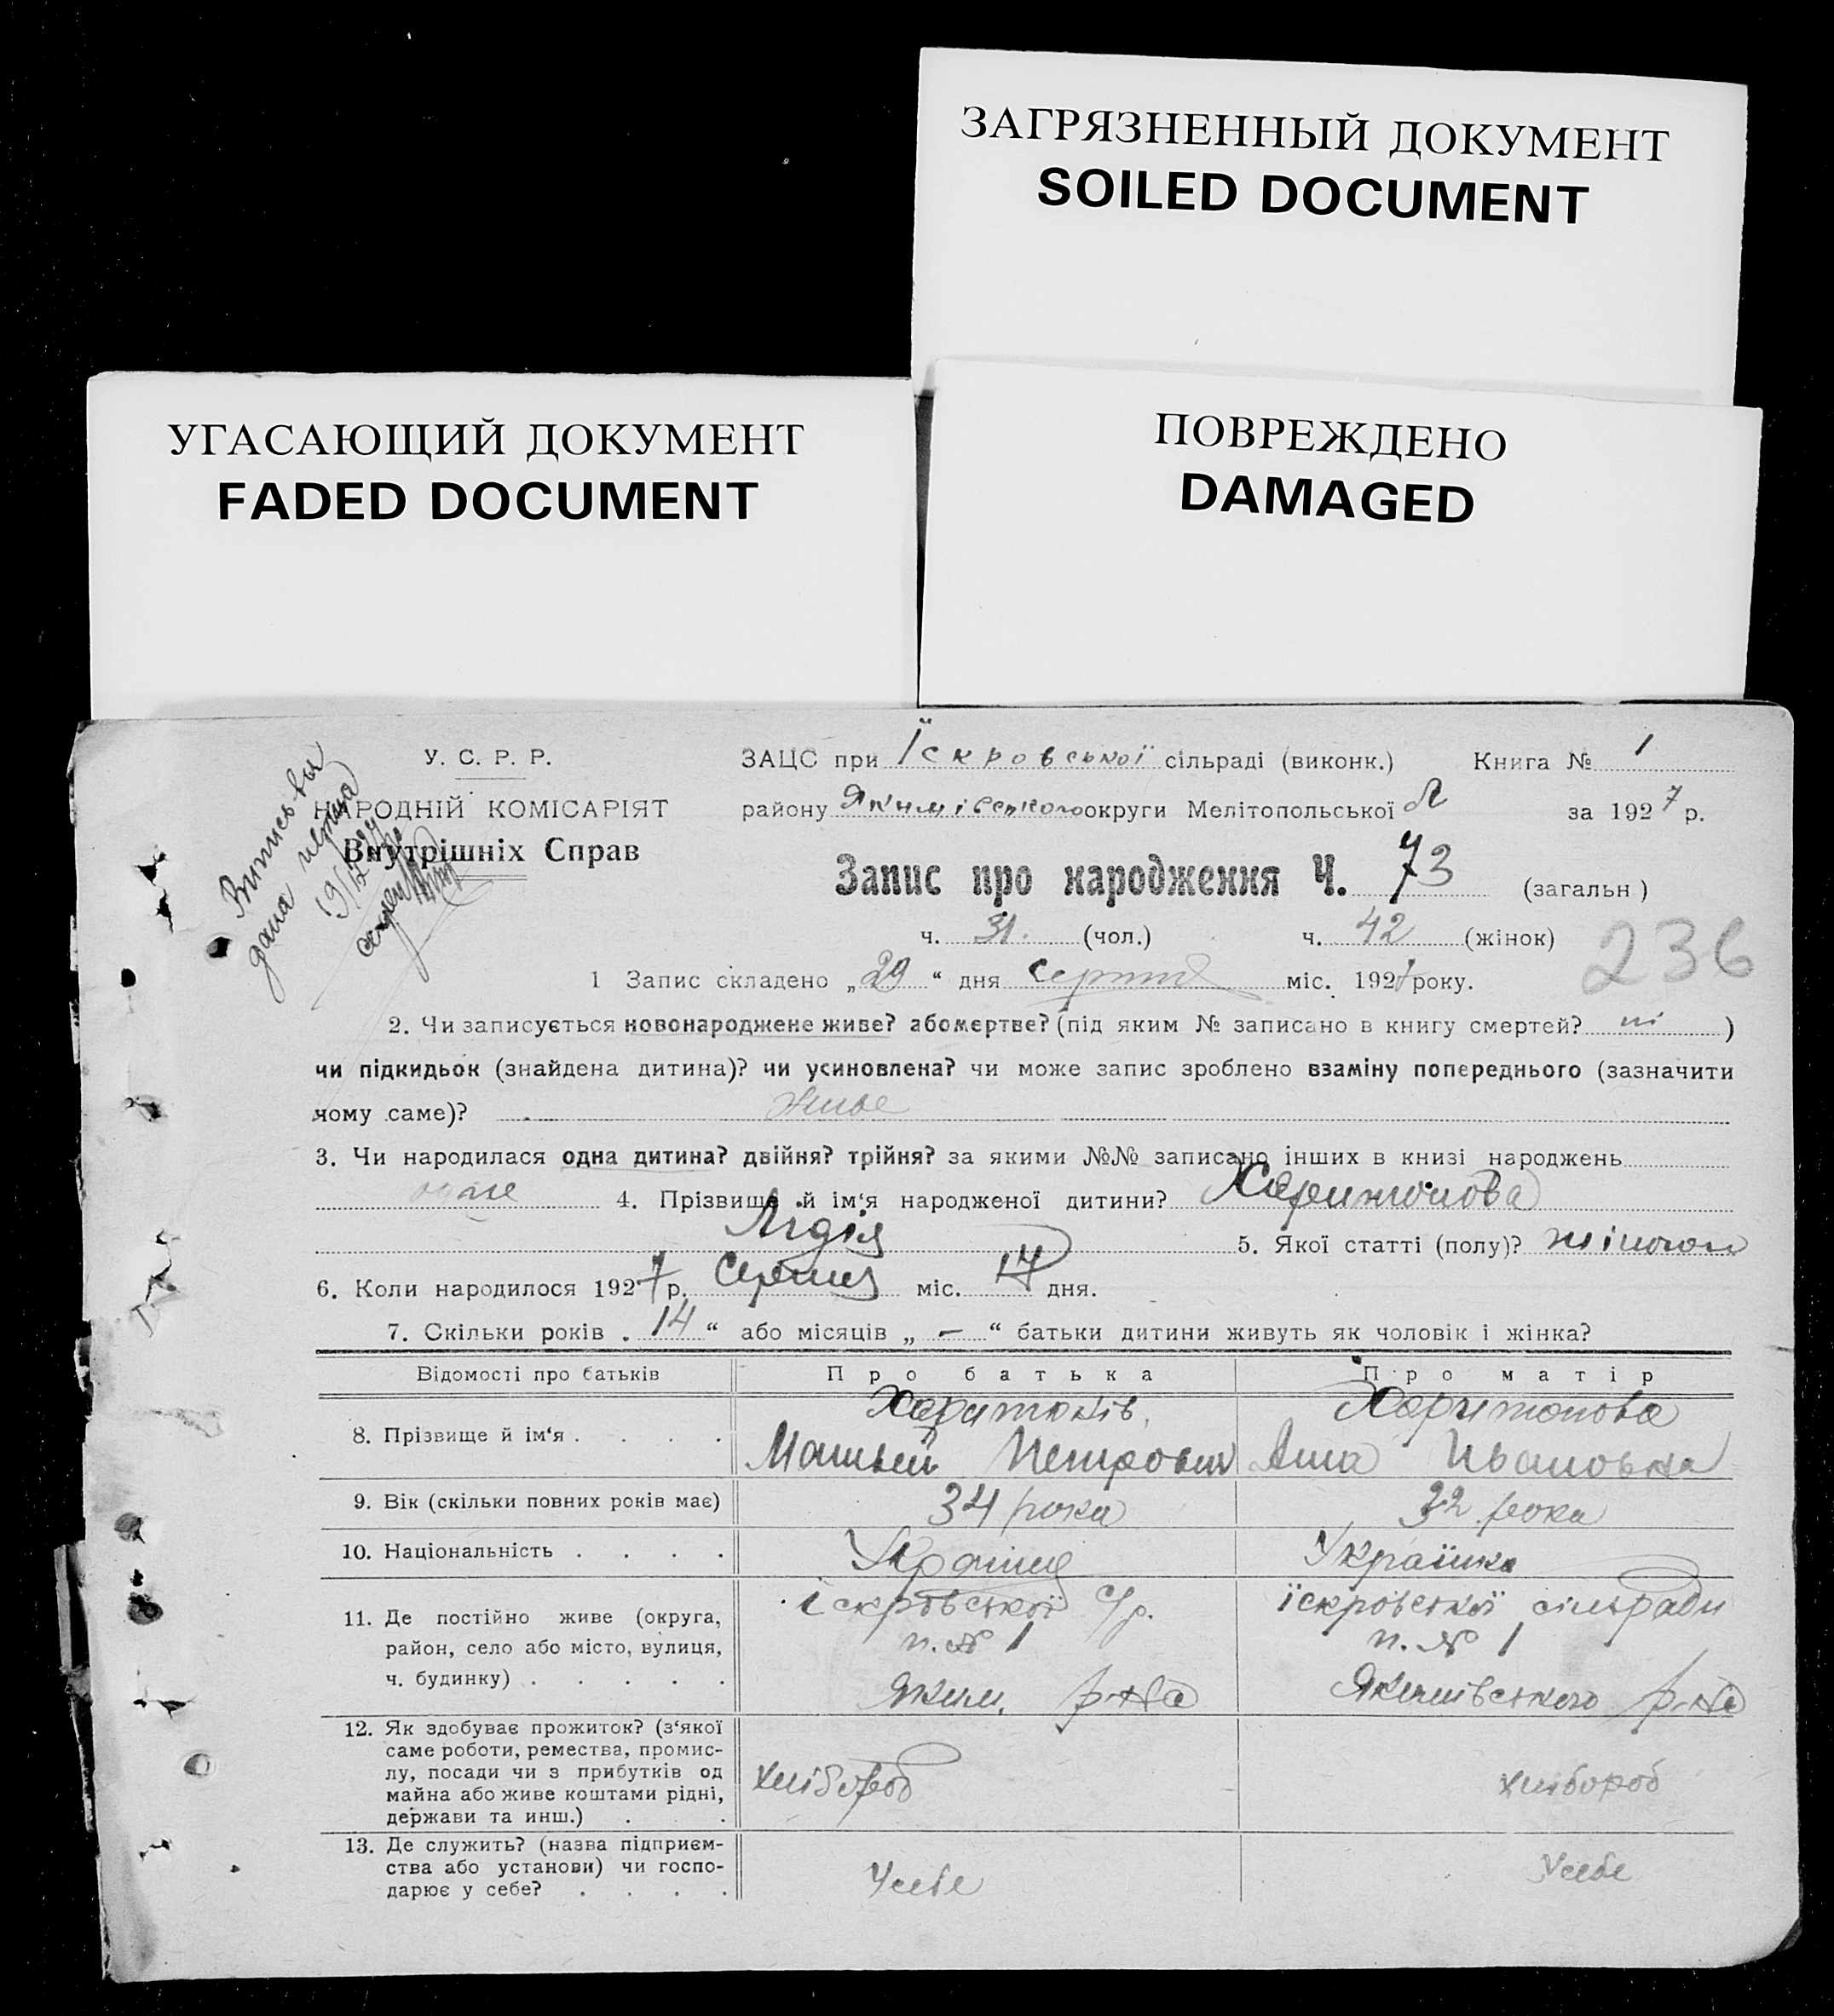 ЗАГРЯЗНЕННЫЙ ДОКУМЕНТ
SOILED DOCUMENT
УГАСАЮЩИЙ ДОКУМЕНТ
FADED DOCUMENT
ПОВРЕЖДЕНО
DAMAGED
У. С. Р. Р.
НАРОДНІЙ КОМІСАРІЯТ
Внутрішніх Справ
дана
ЗАЦС при Їскровської сільраді (виконк.) Книга № 1
району Якимівського округи Мелітопольської за 1927 р.
Запис про народження Ч. 73 (загальн)
ч. 31. (чол.) ч. 42 (жінок)
236
1 Запис складено „29“ дня Серпня міс. 1927 року.
2. Чи записується новонароджене живе? або мертве? (під яким № записано в книгу смертей? ні )
чи підкидьок (знайдена дитина)? чи усиновлена? чи може запис зроблено взаміну попереднього (зазначити
чому саме)? живе
3. Чи народилася одна дитина? двійня? трійня? за якими №№ записано інших в книзі народжень
4. Прізвище й ім‘я народженої дитини? Харитонова
Лідія 5. Якої статті (полу)?
6. Коли народилося 1927 р. Серпня міс. 17 дня.
7. Скільки років „14“ або місяців „ — “ батьки дитини живуть як чоловік і жінка?
Відомості про батьків Про батька Про матір
8. Прізвище й ім‘я . . . . Харитонів, Харитонова
Матвей Петрович Анна Ивановна
9. Вік (скільки повних років має) 34 рока 32 рока
10. Національність . . . . Українец Українка
11. Де постійно живе (округа, район, село або місто, вулиця, ч. будинку) . . . . .
іскровської с/р. їскровської сільради
п. № 1 п. № 1
Яким. р-на Якимівського р-на
12. Як здобуває прожиток? (з‘якої саме роботи, ремества, промислу, посади чи з прибутків од майна або живе коштами рідні, держави та инш.) . .
хлібороб хлібороб
13. Де служить? (назва підприємства або установи) чи господарює у себе? . . . .
У себе У себе